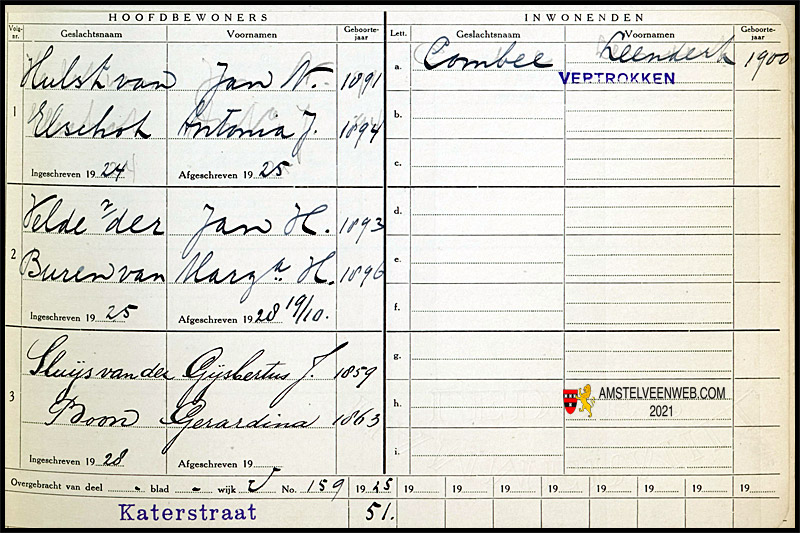 HOOFDBEWONERS
Volg-nr. Geslachtsnaam Voornamen Geboorte-jaar
1 Hulst van Jan N. 1891
Elschot Antonia J. 1894
Ingeschreven 19 24 Afgeschreven 19 25
2 Velde v/der Jan H. 1893
Buren van Marg.a H. 1896
Ingeschreven 19 25 Afgeschreven 19 28 19/10.
3 Sluijs van der Gijsbertus J. 1859
Boon Gerardina 1863
Ingeschreven 19 28 Afgeschreven 19
INWONENDEN
Lett. Geslachtsnaam Voornamen Geboorte-jaar
a. Combee Leendert 1900
VERTROKKEN
b.
c.
d.
e.
f.
g.
h.
i.
AMSTELVEENWEB.COM
2021
Overgebracht van deel - blad - wijk V No. 159 19 25 19 19 19 19 19 19 19 19
Katerstraat 51.